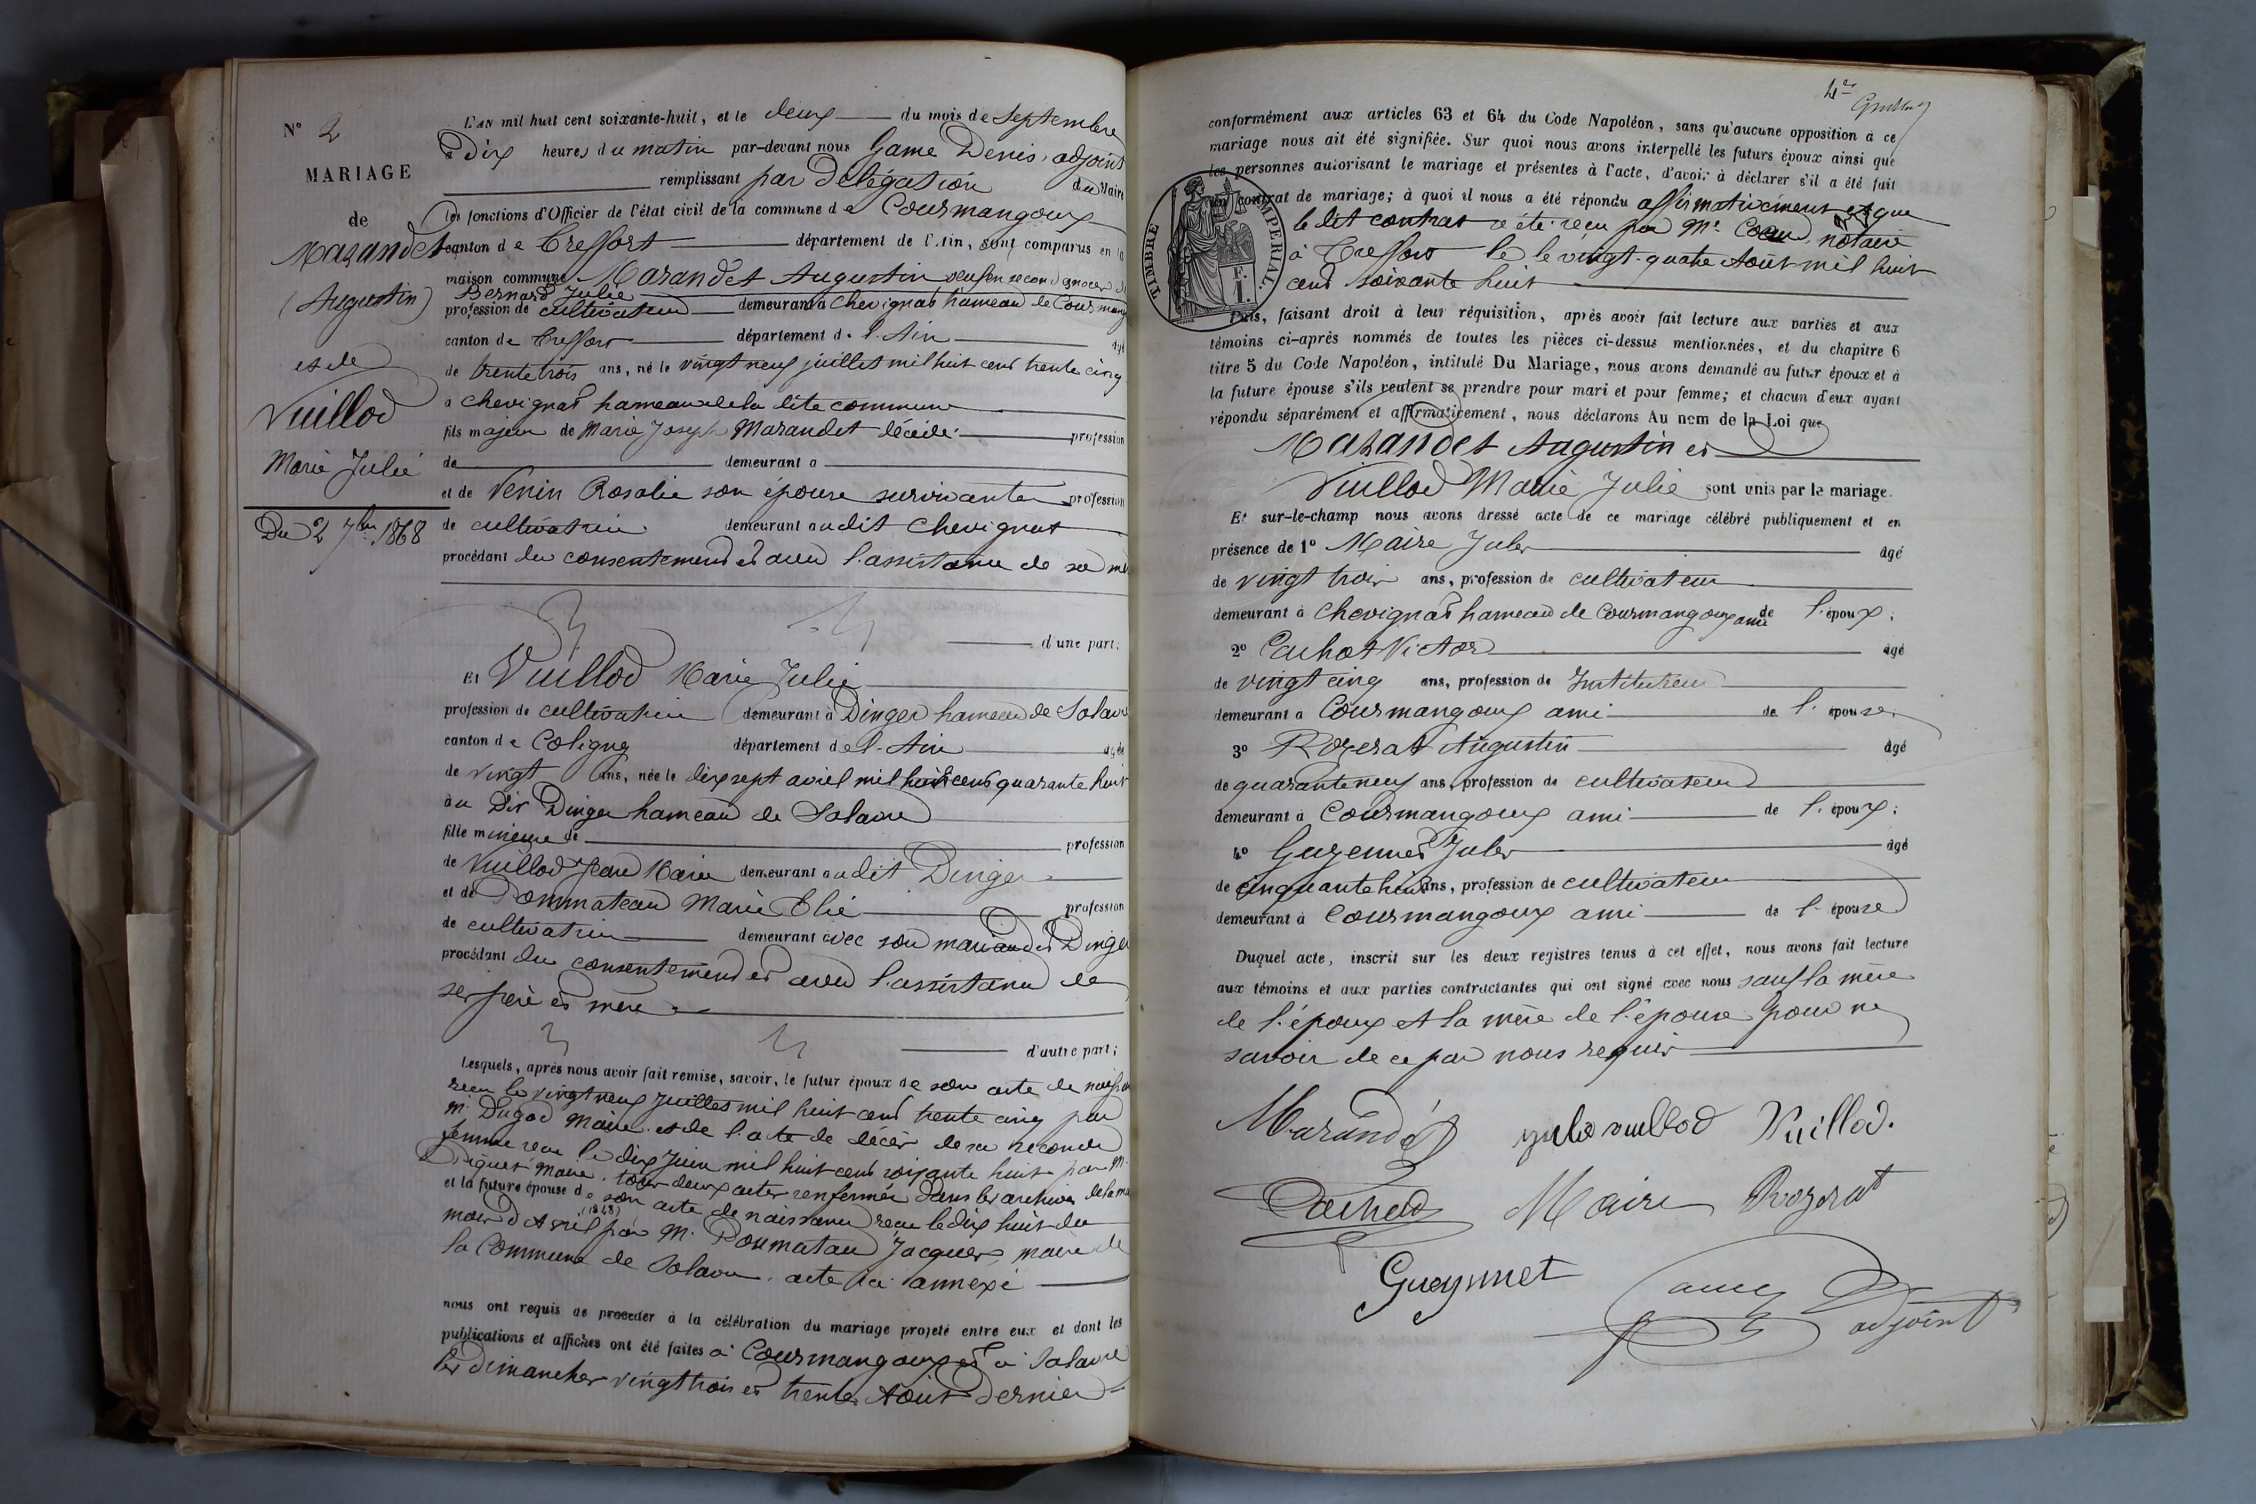 N° 2
MARIAGE
de
Marandet
(Augustin)
et de
Vuillod
Marie Julie
Du 2 7bre 1868
L'AN mil huit cent soixante-huit, et le deux du mois de Septembre
à Dix heures du matin par-devant nous Game Denis, adjoint
remplissant par Délégation du Maire
les fonctions d'Officier de l'état civil de la commune de Courmangoux
canton de Treffort département de l'Ain, sont comparus en la
maison commune Marandet Augustin veuf en secondes noces de
Bernard Julie
profession de cultivateur demeurant à Chevignat hameau de Courmang
canton de Treffort département de l'Ain âgé
de trente trois ans, né le vingt neuf juillet mil huit cent trente cinq
à Chevignat hameau de la dite commune
fils majeur de Marie Joseph Marandet décédé profession
de demeurant à
et de Venin Rosalie son épouse survivante profession
de cultivatrice demeurant audit Chevignat
procédant du consentement et avec l'assistance de sa mère
d'une part;
Et Vuillod Marie Julie
profession de cultivatrice demeurant à Dinger hameau de Salavre
canton de Coligny département de l'Ain âgée
de vingt ans, née le dix sept avril mil huit cent quarante huit
au Dit Dinger hameau de Salavre
fille mineure de profession
de Vuillod Jean Marie demeurant audit Dinger
et de Dommateau Marie Elie profession
de cultivatrice demeurant avec son mari audit Dinger
procédant du consentement et avec l'assistance de
ses père et mère
d'autre part;
Lesquels, après nous avoir fait remise, savoir, le futur époux de son acte de naissance
reçu le vingt neuf Juillet mil huit cent trente cinq par
M. Dugad Maire et de l'acte de décès de sa seconde
femme reçu le dix Juin mil huit cent soixante huit par M.
maire, tous deux actes renfermés dans les archives de la ma
et la future épouse de son acte de naissance reçu le dix huit du
mois d'Avril (1848) par M. Dommatau Jacques, maire de
la Commune de Salavre, acte ci annexé
nous ont requis de procéder à la célébration du mariage projeté entre eux et dont les
publications et affiches ont été faites à Courmangoux et à Salavre
les Dimanches vingt trois et trente Août Dernier
conformément aux articles 63 et 64 du Code Napoléon, sans qu'aucune opposition à ce
mariage nous ait été signifiée. Sur quoi nous avons interpellé les futurs époux ainsi que
les personnes autorisant le mariage et présentes à l'acte, d'avoir à déclarer s'il a été fait
un contrat de mariage; à quoi il nous a été répondu affirmativement et que
le dit contrat a été reçu par Me notaire
à Treffort le le vingt-quatre Août mil huit
cent soixante huit
TIMBRE IMPERIAL.
1 F.
Puis, faisant droit à leur réquisition, après avoir fait lecture aux parties et aux
témoins ci-après nommés de toutes les pièces ci-dessus mentionnées, et du chapitre 6
titre 5 du Code Napoléon, intitulé Du Mariage, nous avons demandé au futur époux et à
la future épouse s'ils veulent se prendre pour mari et pour femme; et chacun d'eux ayant
répondu séparément et affirmativement, nous déclarons Au nom de la Loi que
Marandet Augustin et
Vuillod Marie Julie sont unis par le mariage.
Et sur-le-champ nous avons dressé acte de ce mariage célébré publiquement et en
présence de 1° Maire Jules âgé
de vingt trois ans, profession de cultivateur
demeurant à Chevignat hameau de Courmangoux ami de l'époux;
2° Pachot Victor âgé
de vingt cinq ans, profession de Instituteur
demeurant à Courmangoux ami de l'épouse;
3° Rozerat Augustin âgé
de quarante neuf ans, profession de cultivateur
demeurant à Courmangoux ami de l'époux;
4° Guyennet Jules âgé
de cinquante huit ans, profession de cultivateur
demeurant à Courmangoux ami de l'épouse
Duquel acte, inscrit sur les deux registres tenus à cet effet, nous avons fait lecture
aux témoins et aux parties contractantes qui ont signé avec nous sauf la mère
de l'époux et la mère de l'épouse pour ne
savoir de ce par nous requis
Marandet Julie vuillod Vuillod.
Pachod Maire Rozerat
Gueynnet Game adjoint